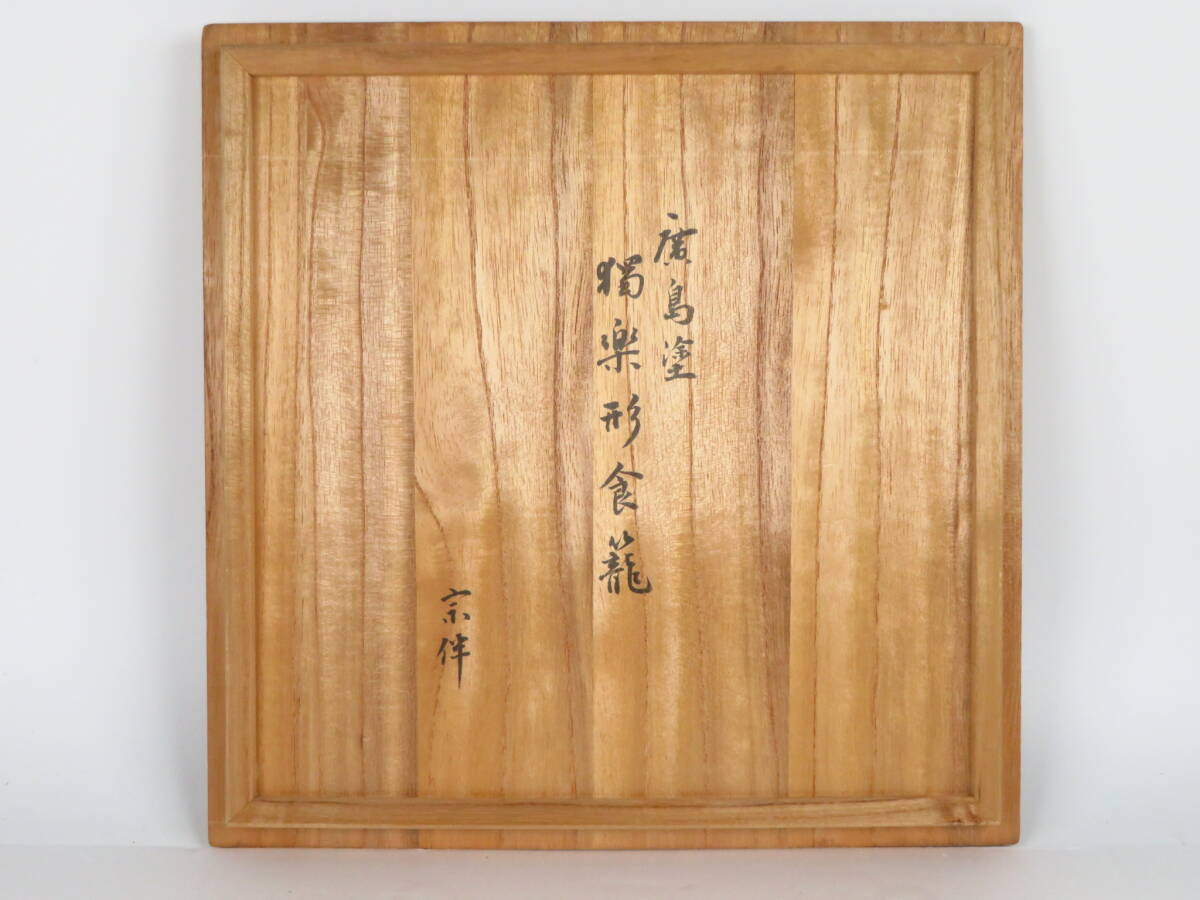 廣島塗
獨楽形食籠
宗伴